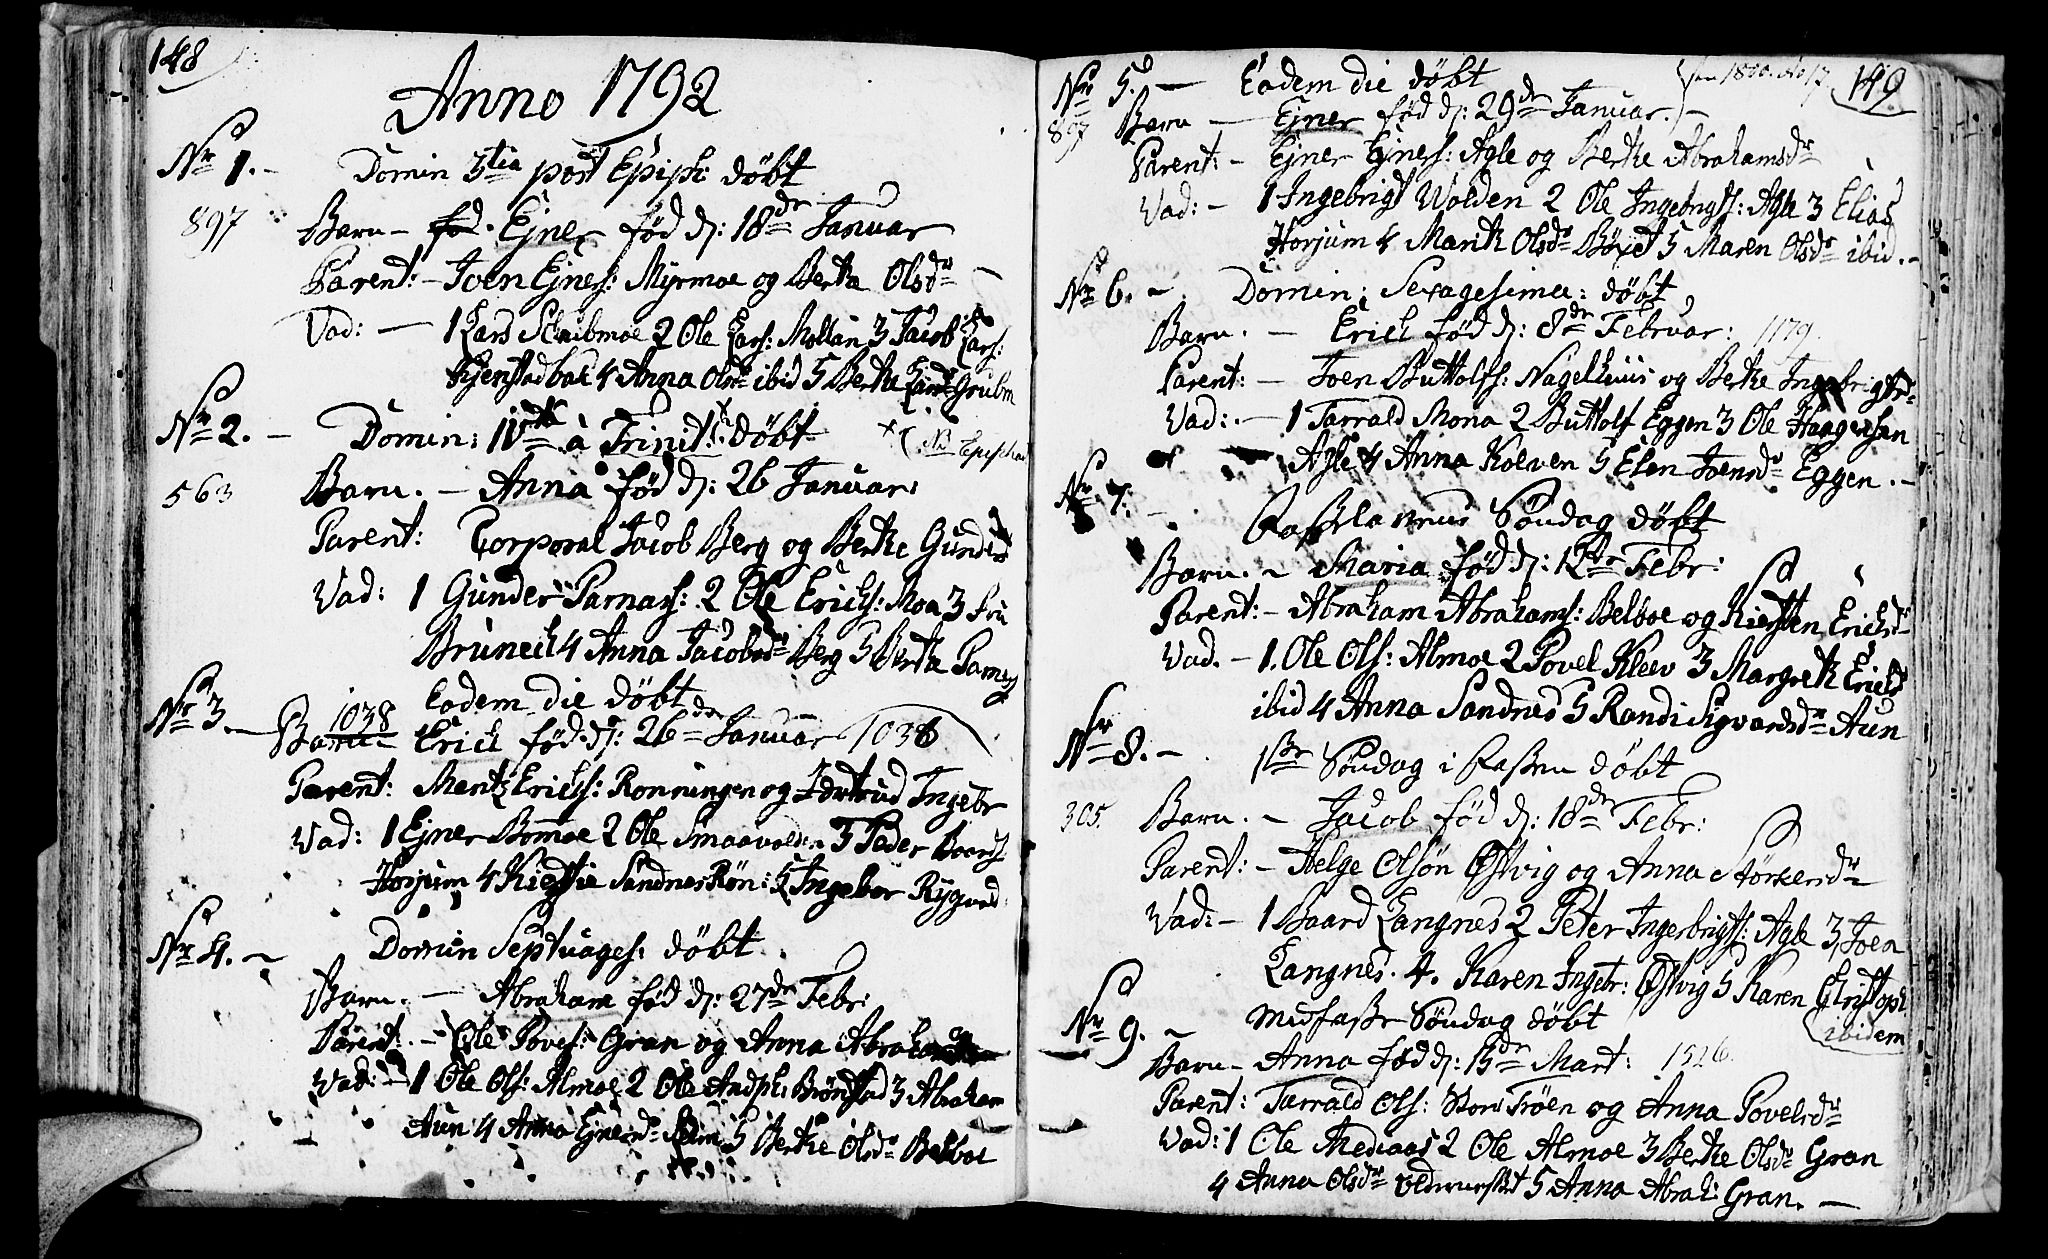 148
Anno 1792
Nr 1. - Domin 3tia post Epiph: döbt
897 Barn - Ejner föd d: 18de Januar
Parent: - Joen Ejners: Myrmoe og Berta Olsdr -
Vad: - 1 Lars Skubmoe 2 Ole Lars: Mollan 3 Jacob Lars:
Kjenstadbak 4 Anna Olsdr ibid 5 Berta Larsdr Grubm
Nr 2. - Domin: IVta à Trinit: döbt × (NB Epiphan
563 Barn. - Anna föd d: 26 Januar:
Parent: Corporal Jacob Berg og Berthe Gundersd
Vad: 1 Gunder Parnas: 2 Ole Ericks: Moa 3 Fru
Brüneck 4 Anna Jacobsdr Berg 5 Berta Parnas
Nr 3. - Eodem die döbt
1038
Barn - Erich föd d: 26de Januar 1038
Parent: Mentz Ericks: Ronningen og Gortrud Ingebr
Vad: 1 Ejner Bomoe 2 Ole Smaavolden 3 Peder Baards
Horjum 4 Kirstie Sandnes Rön: 5 Ingebor Rygvold
Nr 4. - Domin Septuages: döbt
Barn. - Abraham föd d: 27de Febr:
Parent: - Ole Povels: Gran og Anna
Vad: 1 Ole Ols: Almoe 2 Ole Andph: Brönstad 3 Abraham
Aun 4 Anna Ejnersdr 5 Berthe Olsdr Belboe
149
Nr 5. - Eodem die döbt 1800. No 17
897 Barn - Ejner föd d: 29de Januar. -
Parent: - Ejner Ejners: Agle og Berthe Abrahamsdr
Vad: - 1 Ingebrigt Wolden 2 Ole Ingebrigts: Agle 3 Elias
Horjum 4 Marith Olsdr Böxet 5 Maren Olsdr ibid. -
Nr 6. - Domin: Sexagesima: döbt
Barn. - Erich föd d: 8de Februar: 1179
Parent: - Joen Buttolfs: Nagelhuus og Berthe Ingebrigtdr
Vad: - 1 Tarrald Mona 2 Buttolf Eggen 3 Ole Haagensen
Agle 4 Anna Kolven 5 Elen Joensdr Eggen. -
Nr 7. - Fastelavens Söndag döbt
Barn. - Maria föd d: 12de Febr:
Parent: - Abraham Abrahams: Belboe og Kiersten Ericksdr
Vad. - 1. Ole Ols: Almoe 2 Povel Kleev 3 Margreth Ericksd
ibid 4 Anna Sandnes 5 Randi Sigvardsdr Aun
Nr 8. - 1ste Söndag i Fasten döbt
305. Barn. - Jacob föd d: 18de Febr:
Parent: - Helge Olsön Østvig og Anna Störkersdr
Vad: - 1 Baard Langnes 2 Peter Ingebrigts: Agle 3, Joen
Langnes. 4. Karen Ingebr: Østvig 5 Karen Christoph
ibidem
Nr 9. - Midfaste Söndag döbt
Barn - Anna föd d: 15de Mart: 1526.
Parent: Tarrald Ols: Stor Tröen og Anna Povelsdr
Vad: 1 Ole Mediaas 2 Ole Almoe 3 Berthe Olsdr Gran
4 Anna Olsdr 5 Anna Abrah: Gran. -